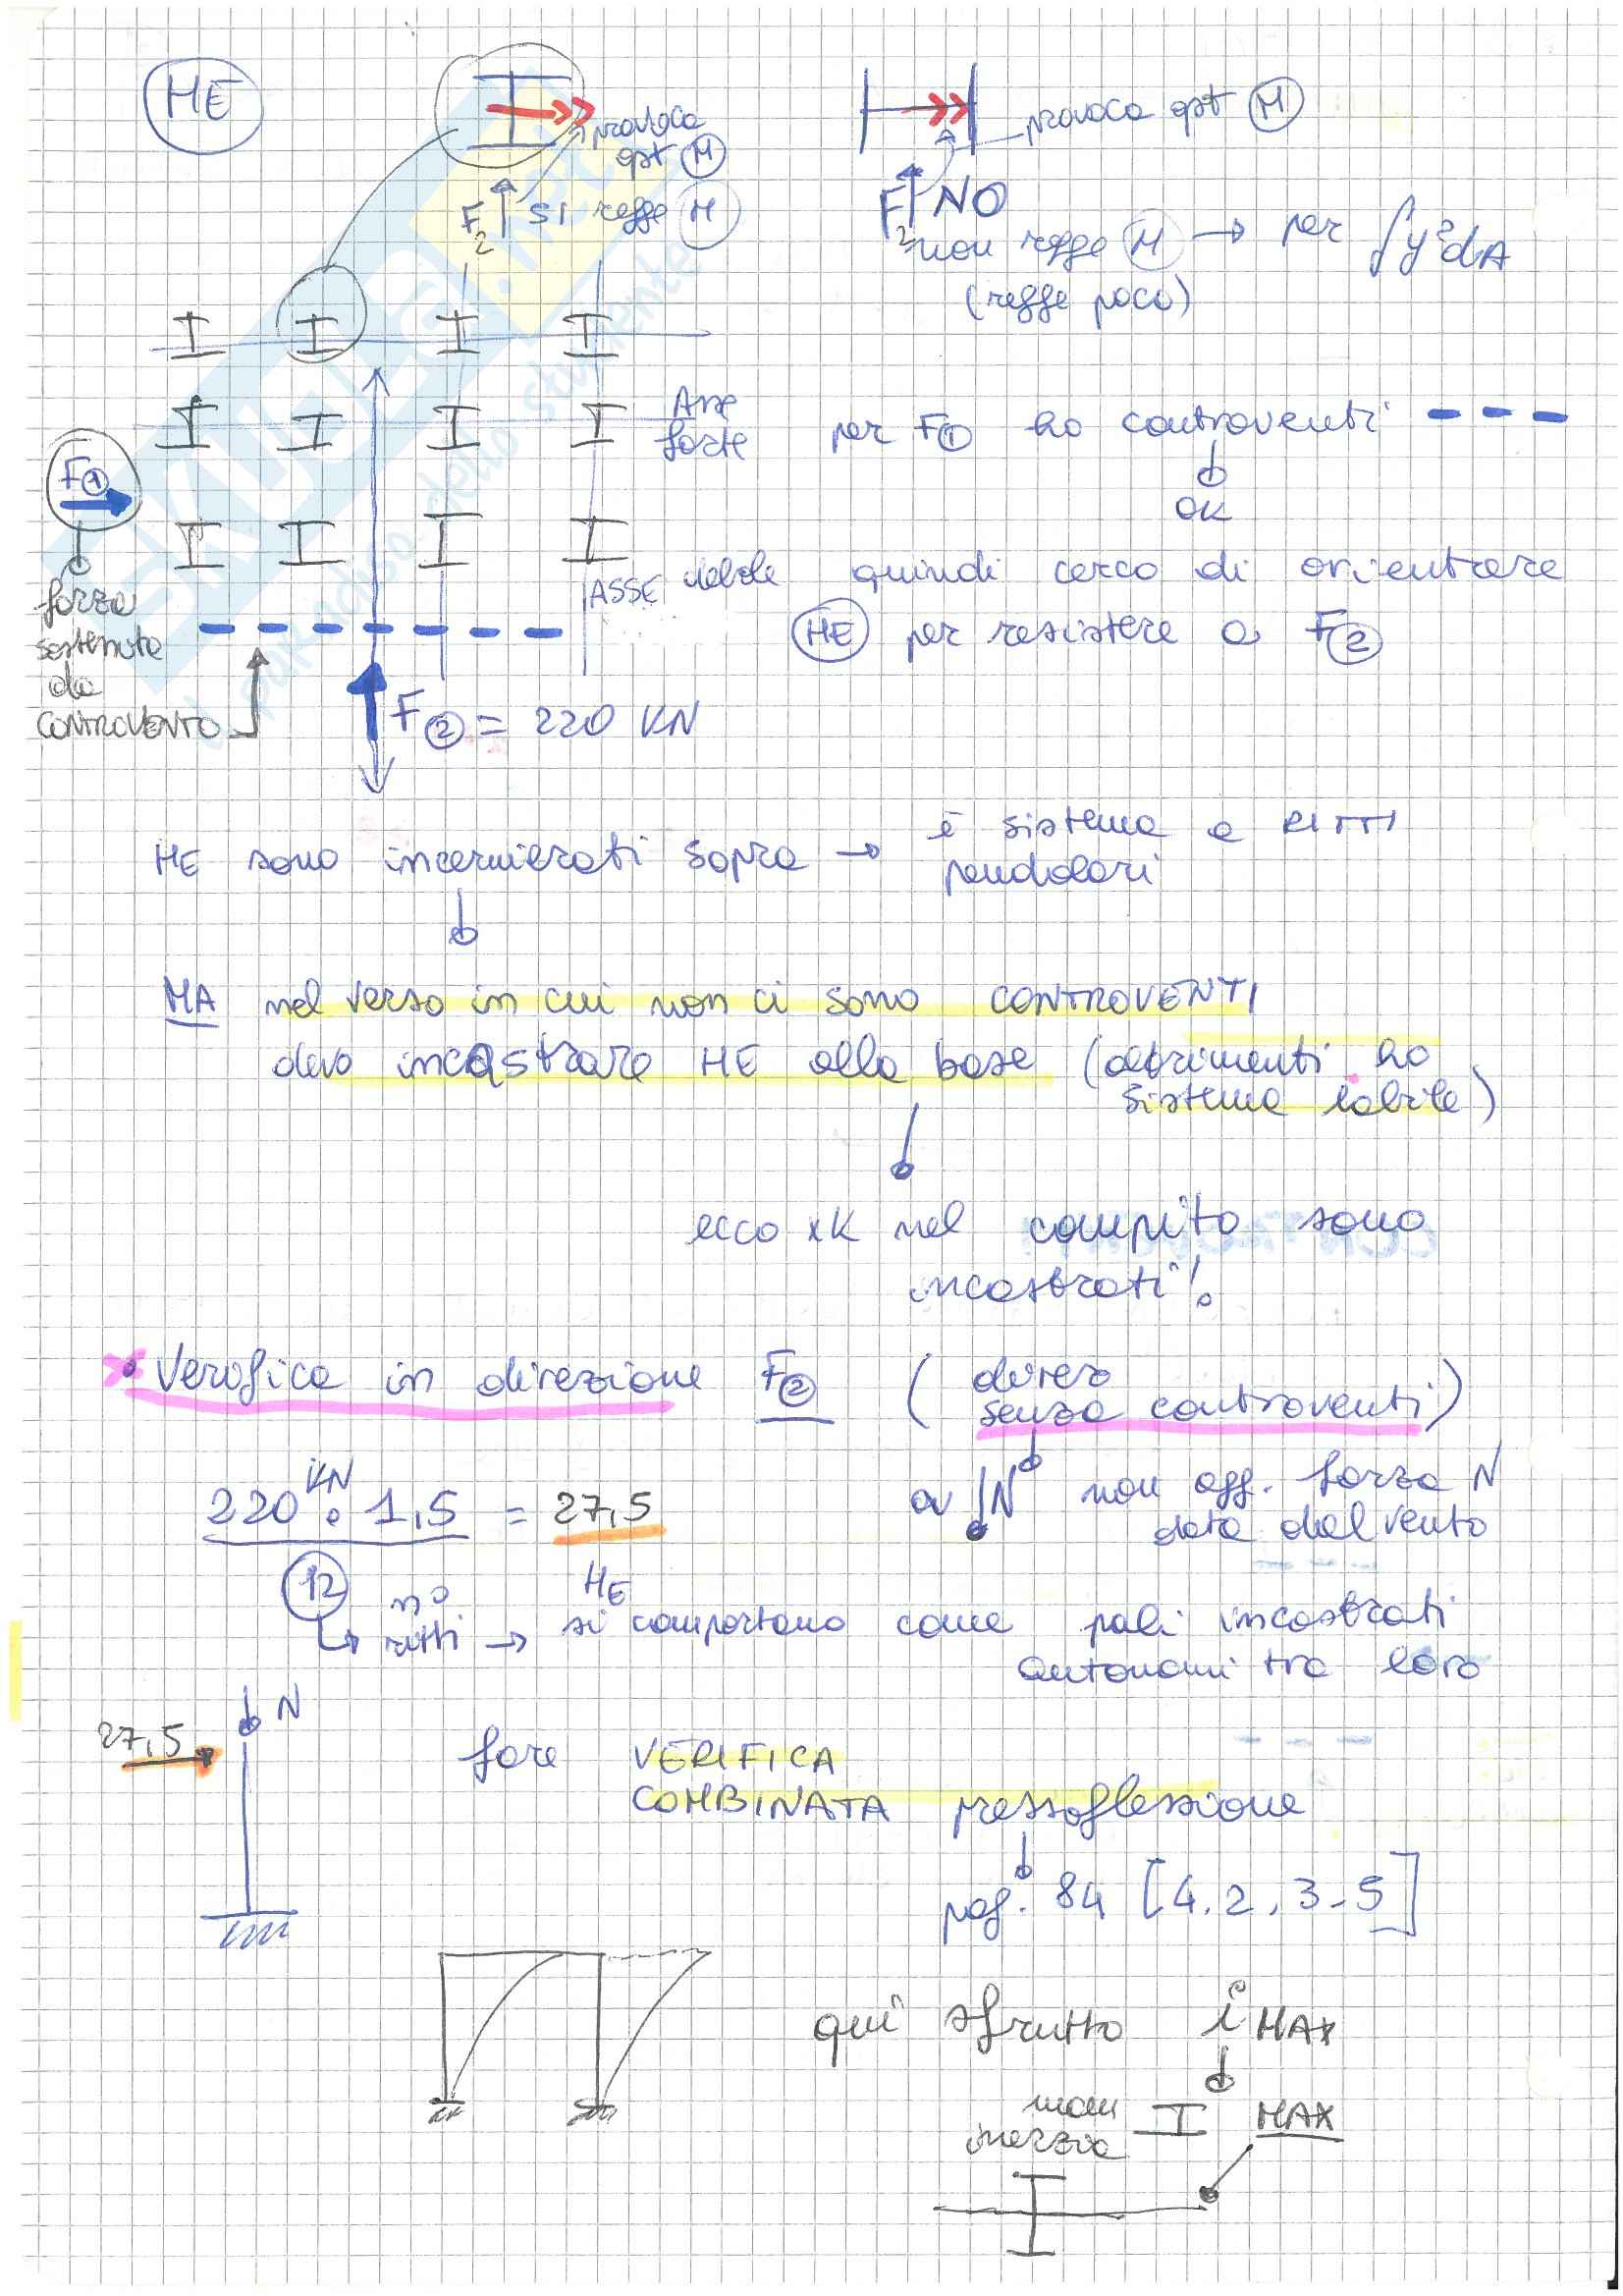 HE
provoca
qst M
F2 SI regge M
provoca qst M
F2 NO
non regge M → per ∫y²dA
(regge poco)
Asse
forte
per F1 ho controventi
OK
F1
forza
sostenuta
da
CONTROVENTO
ASSE debole
quindi cerco di orientare
HE per resistere a F2
F2 = 220 KN
HE sono incernierati sopra → è sistema a RITTI
pendolari
MA nel verso in cui non ci sono CONTROVENTI
devo incastrare HE alla base (altrimenti ho
sistema labile)
ecco xK nel compito sono
incastrati!
• Verifica in direzione F2 (direz
senza controventi)
220 KN · 1,5 = 27,5
12
n°
ritti → HE si comportano come pali incastrati
autonomi tra loro
N non agg. forza N
data dal vento
N
27,5
fare VERIFICA
COMBINATA pressoflessione
pag. 84 [4.2.3-5]
qui sfrutto i MAX
mom
inerzia
MAX